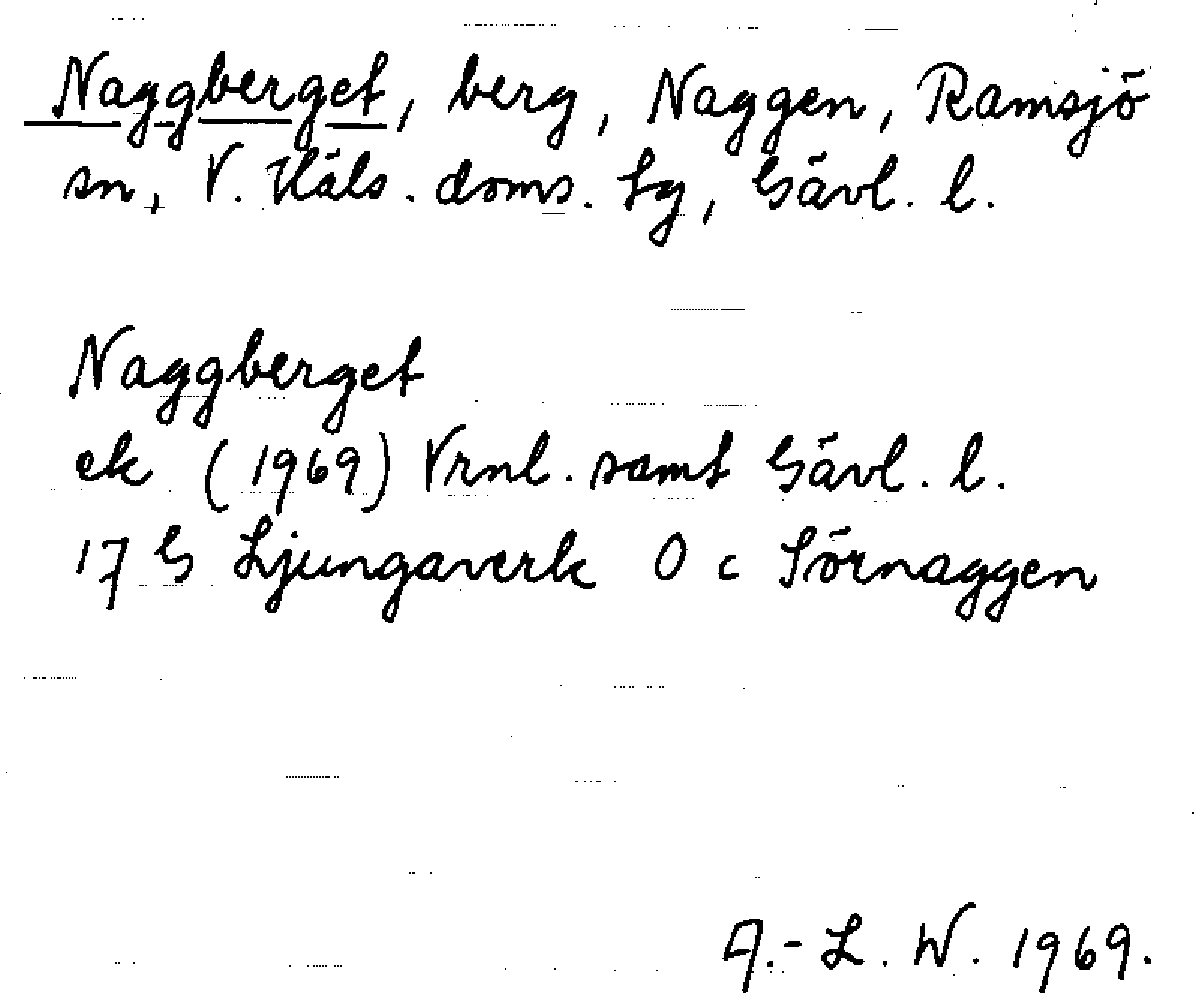 Naggberget, berg, Naggen, Ramsjö
sn, V. Häls. doms. Lg, Gävl. l.
Naggberget
ek (1969) Vrnl. samt Gävl. l.
17 G Ljungaverk 0 c Sörnaggen
A.-L. W. 1969.